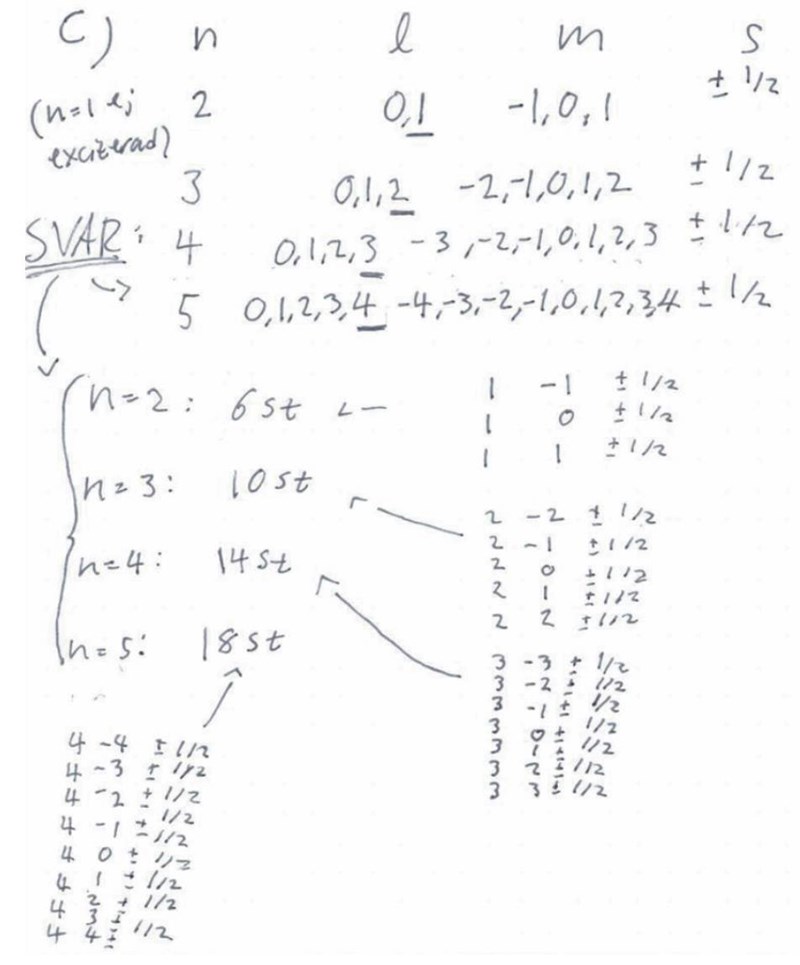 C) n l m s
(n=1 ej exciterad) 2 0,1 -1,0,1 ± 1/2
3 0,1,2 -2,-1,0,1,2 ± 1/2
SVAR: 4 0,1,2,3 -3,-2,-1,0,1,2,3 ± 1/2
5 0,1,2,3,4 -4,-3,-2,-1,0,1,2,3,4 ± 1/2
n=2: 6 st
1 -1 ± 1/2
1 0 ± 1/2
1 1 ± 1/2
n=3: 10 st
2 -2 ± 1/2
2 -1 ± 1/2
2 0 ± 1/2
2 1 ± 1/2
2 2 ± 1/2
n=4: 14 st
3 -3 ± 1/2
3 -2 ± 1/2
3 -1 ± 1/2
3 0 ± 1/2
3 1 ± 1/2
3 2 ± 1/2
3 3 ± 1/2
n=5: 18 st
4 -4 ± 1/2
4 -3 ± 1/2
4 -2 ± 1/2
4 -1 ± 1/2
4 0 ± 1/2
4 1 ± 1/2
4 2 ± 1/2
4 3 ±
4 4 ± 1/2